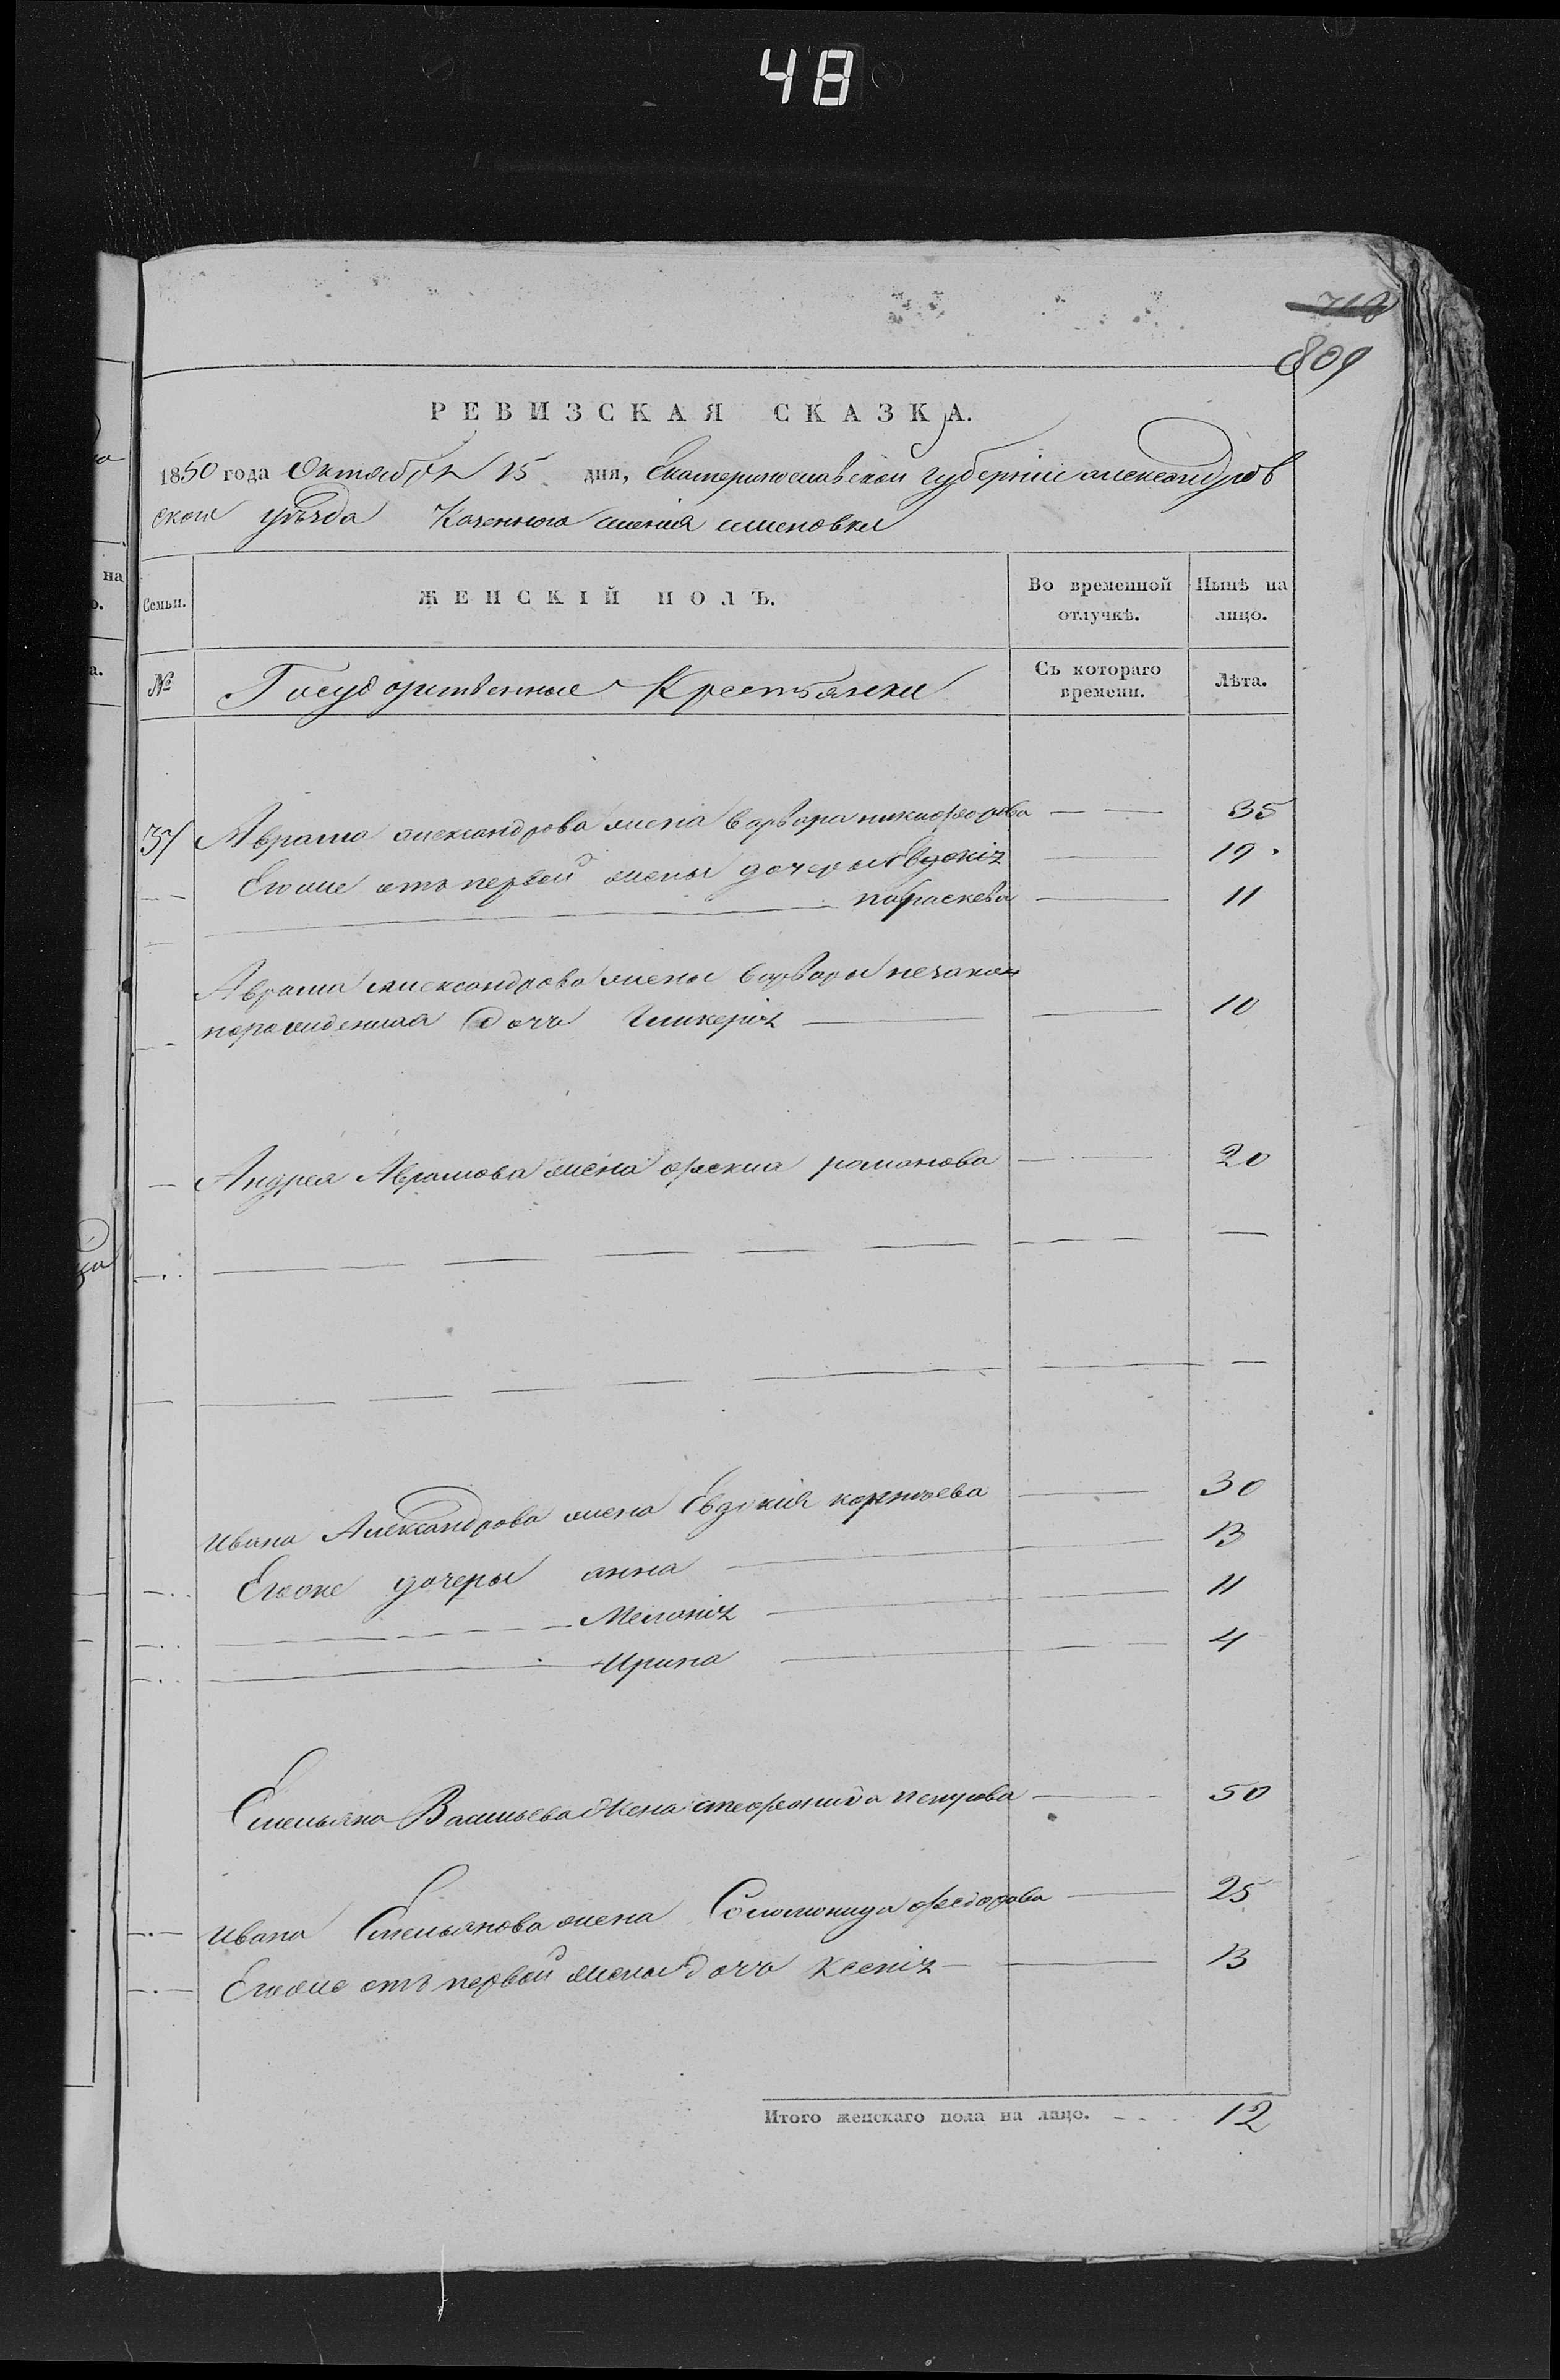 48
809
РЕВИЗСКАЯ СКАЗКА.
1850 года Октября 15 дня, Екатеринославской губерніи александров
ского уѣзда Казенного имения
Семьи. ЖЕНСКІЙ ПОЛЪ. Во временной отлучкѣ. Нынѣ на лицо.
№ Государственные Крестьянки Съ котораго времени. Лѣта.
37 Аврама александрова жена варвара никифорова — 35
Егоже отъ первой жены дочеры Евдокія — 19
параскева — 11
Аврама александрова жены варвары незакон
норожденная дочь Гликерія — 10
Андрея Аврамова жена фекла романова — 20
Ивана Александрова жена Евдокия корнеева — 30
Егоже дочеры анна — 13
Меланія — 11
Ирина — 4
Емельяна Васильева жена стефанида петрова — 50
Ивана Емельянова жена Соломонида федорова — 25
Егоже отъ первой жены дочь ксенія — 13
Итого женскаго пола на лицо. 12